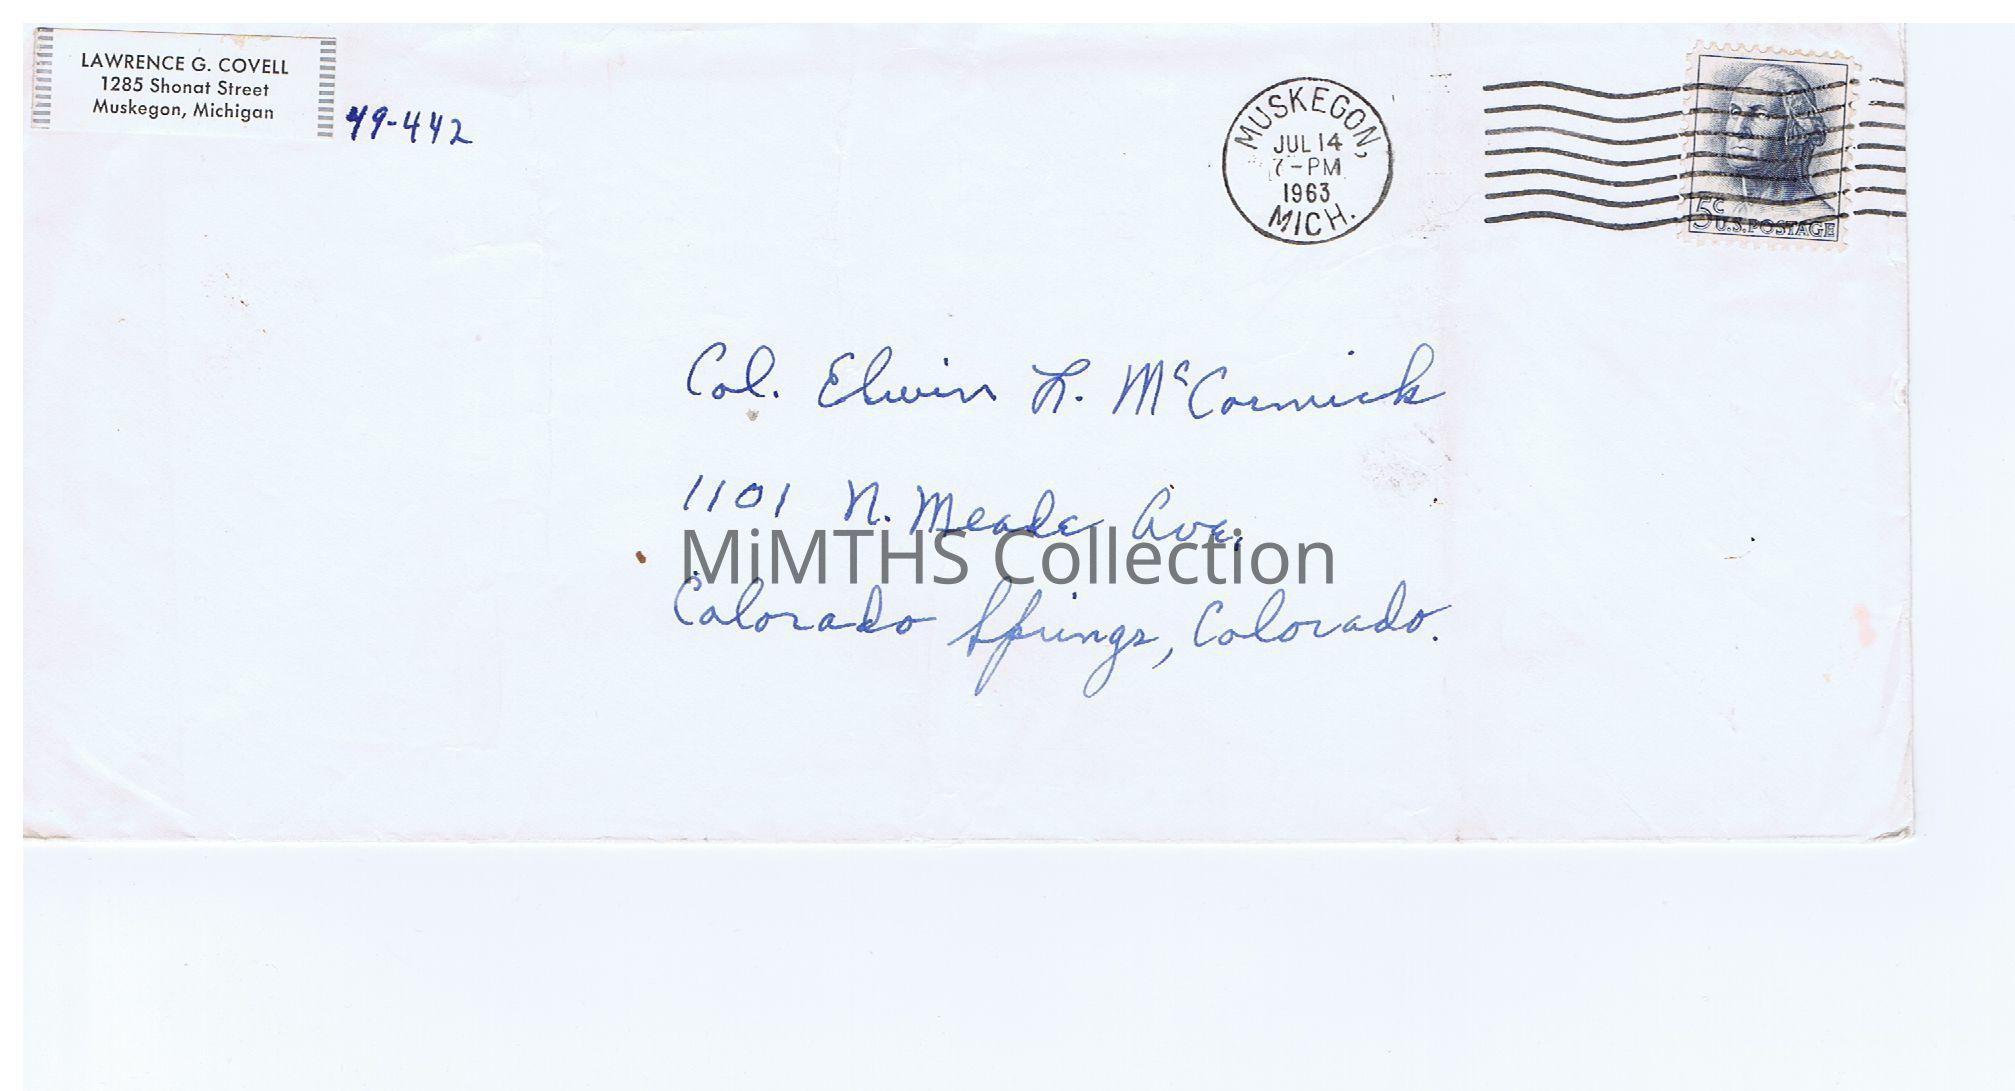 LAWRENCE G. COVELL
1285 Shonat Street
Muskegon, Michigan
49-442
MUSKEGON,
JUL 14
7-PM
1963
MICH.
5c U.S. POSTAGE
Col. Elwin L. McCormick
1101 N. Meade Ave.
MiMTHS Collection
Colorado Springs, Colorado.